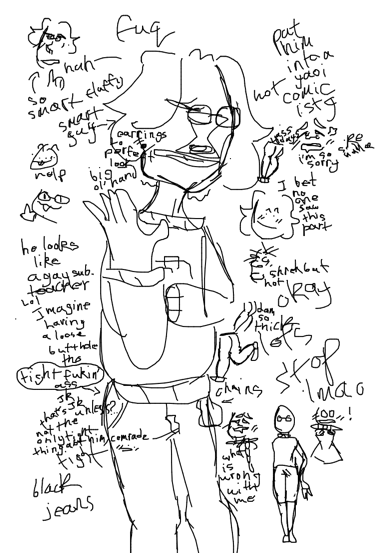 fuq
nah
so
smart fluffy
smart
guy
earrings
to
perfect
look
big
ol' hand
help
he looks
like
a gay sub.
teacher
lol
Imagine
having
a loose
butthole
the
tight fukin'
ass
jk
that's unless?
not the
only tight
thing at him, comrade
tight
black
jeans
put
him
into a
yaoi
comic
istg
hot
i'm so
sorry
I bet
no
one
saw
this
part
shred but
not
okay
dam
so
thick
chains
stop
lmao
what
is
wrong
with
me